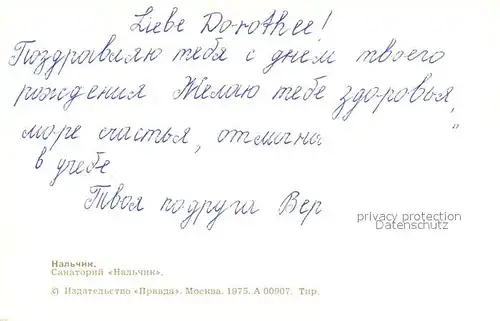 Liebe Dorothee!
Поздравляю тебя с днём твоего
рождения Желаю тебе здоровья,
море счастья, отлична
в учебе
Твоя подруга Вер
privacy protection
Datenschutz
Нальчик.
Санаторий «Нальчик».
© Издательство «Правда». Москва. 1975. А 00907. Тир.